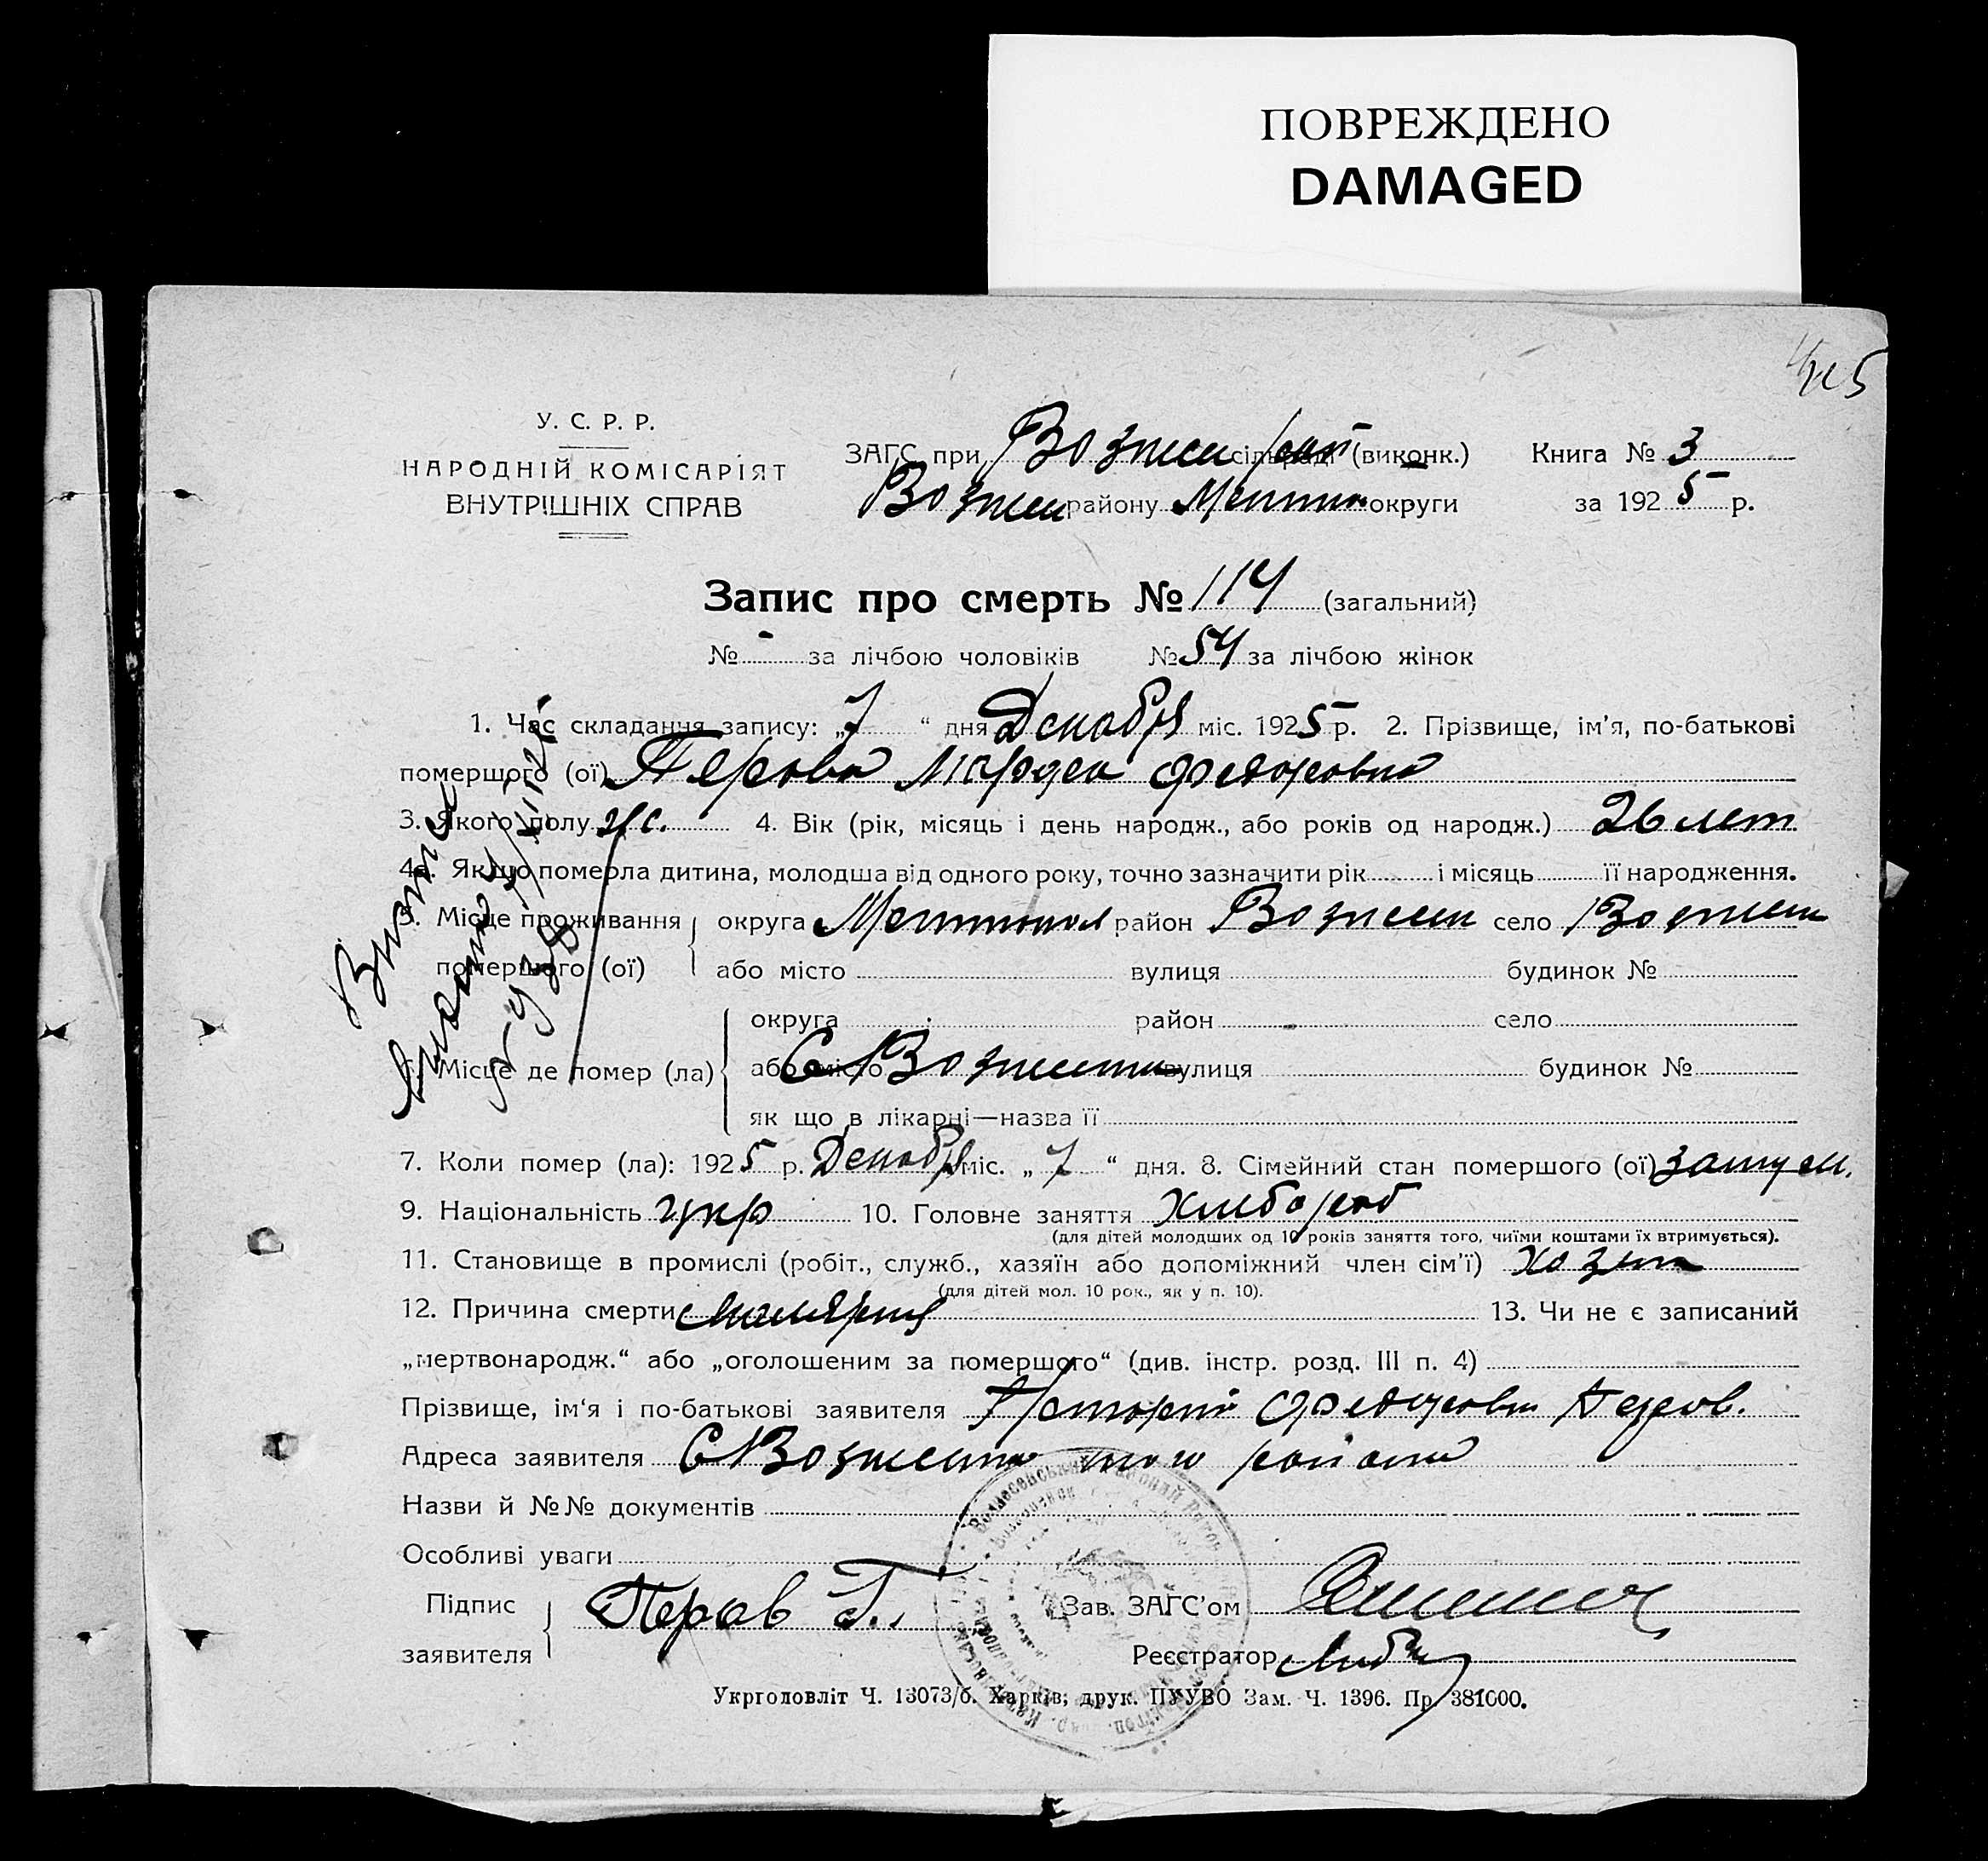 ПОВРЕЖДЕНО
DAMAGED
У. С. Р. Р.
НАРОДНІЙ КОМІСАРІЯТ
ВНУТРІШНІХ СПРАВ
ЗАГС при Вознесен рай сільраді (виконк.) Книга № 3
Вознесен району Мелитоп округи за 1925 р.
Запис про смерть № 114 (загальний)
№ - за лічбою чоловіків № 54 за лічбою жінок
1. Час складання запису: „7“ дня Декабря міс. 1925 р. 2. Прізвище, ім’я, по-батькові
помершого (ої) Перова Марфа Федоровна
3. Якого полу ж. 4. Вік (рік, місяць і день народж., або років од народж.) 26 лет
4а. Якщо померла дитина, молодша від одного року, точно зазначити рік і місяць її народження.
5. Місце проживання помершого (ої) округа Мелитопол район Вознесен село Вознесен
або місто вулиця будинок №
округа район село
Місце де помер (ла) або місто С Вознесенка вулиця будинок №
як що в лікарні—назва її
7. Коли помер (ла): 1925 р. Декабря міс. „7“ дня. 8. Сімейний стан помершого (ої) замужем.
9. Національність укр 10. Головне заняття Хлебороб
(для дітей молодших од 10 років заняття того, чиїми коштами їх втримується).
11. Становище в промислі (робіт., служб., хазяїн або допоміжний член сім’ї)
(для дітей мол. 10 рок., як у п. 10).
12. Причина смерти малярия 13. Чи не є записаний
„мертвонародж.“ або „оголошеним за помершого“ (див. інстр. розд. III п. 4)
Прізвище, ім‘я і по-батькові заявителя Григорий Федорович Перов.
Адреса заявителя С Вознесенка того района
Назви й №№ документів
Особливі уваги
Підпис заявителя Перов Г. Зав. ЗАГС’ом
Реєстратор
Укрголовліт Ч. 13073/б. Харків; друк. ПУУВО Зам. Ч. 1396. Пр. 381000.